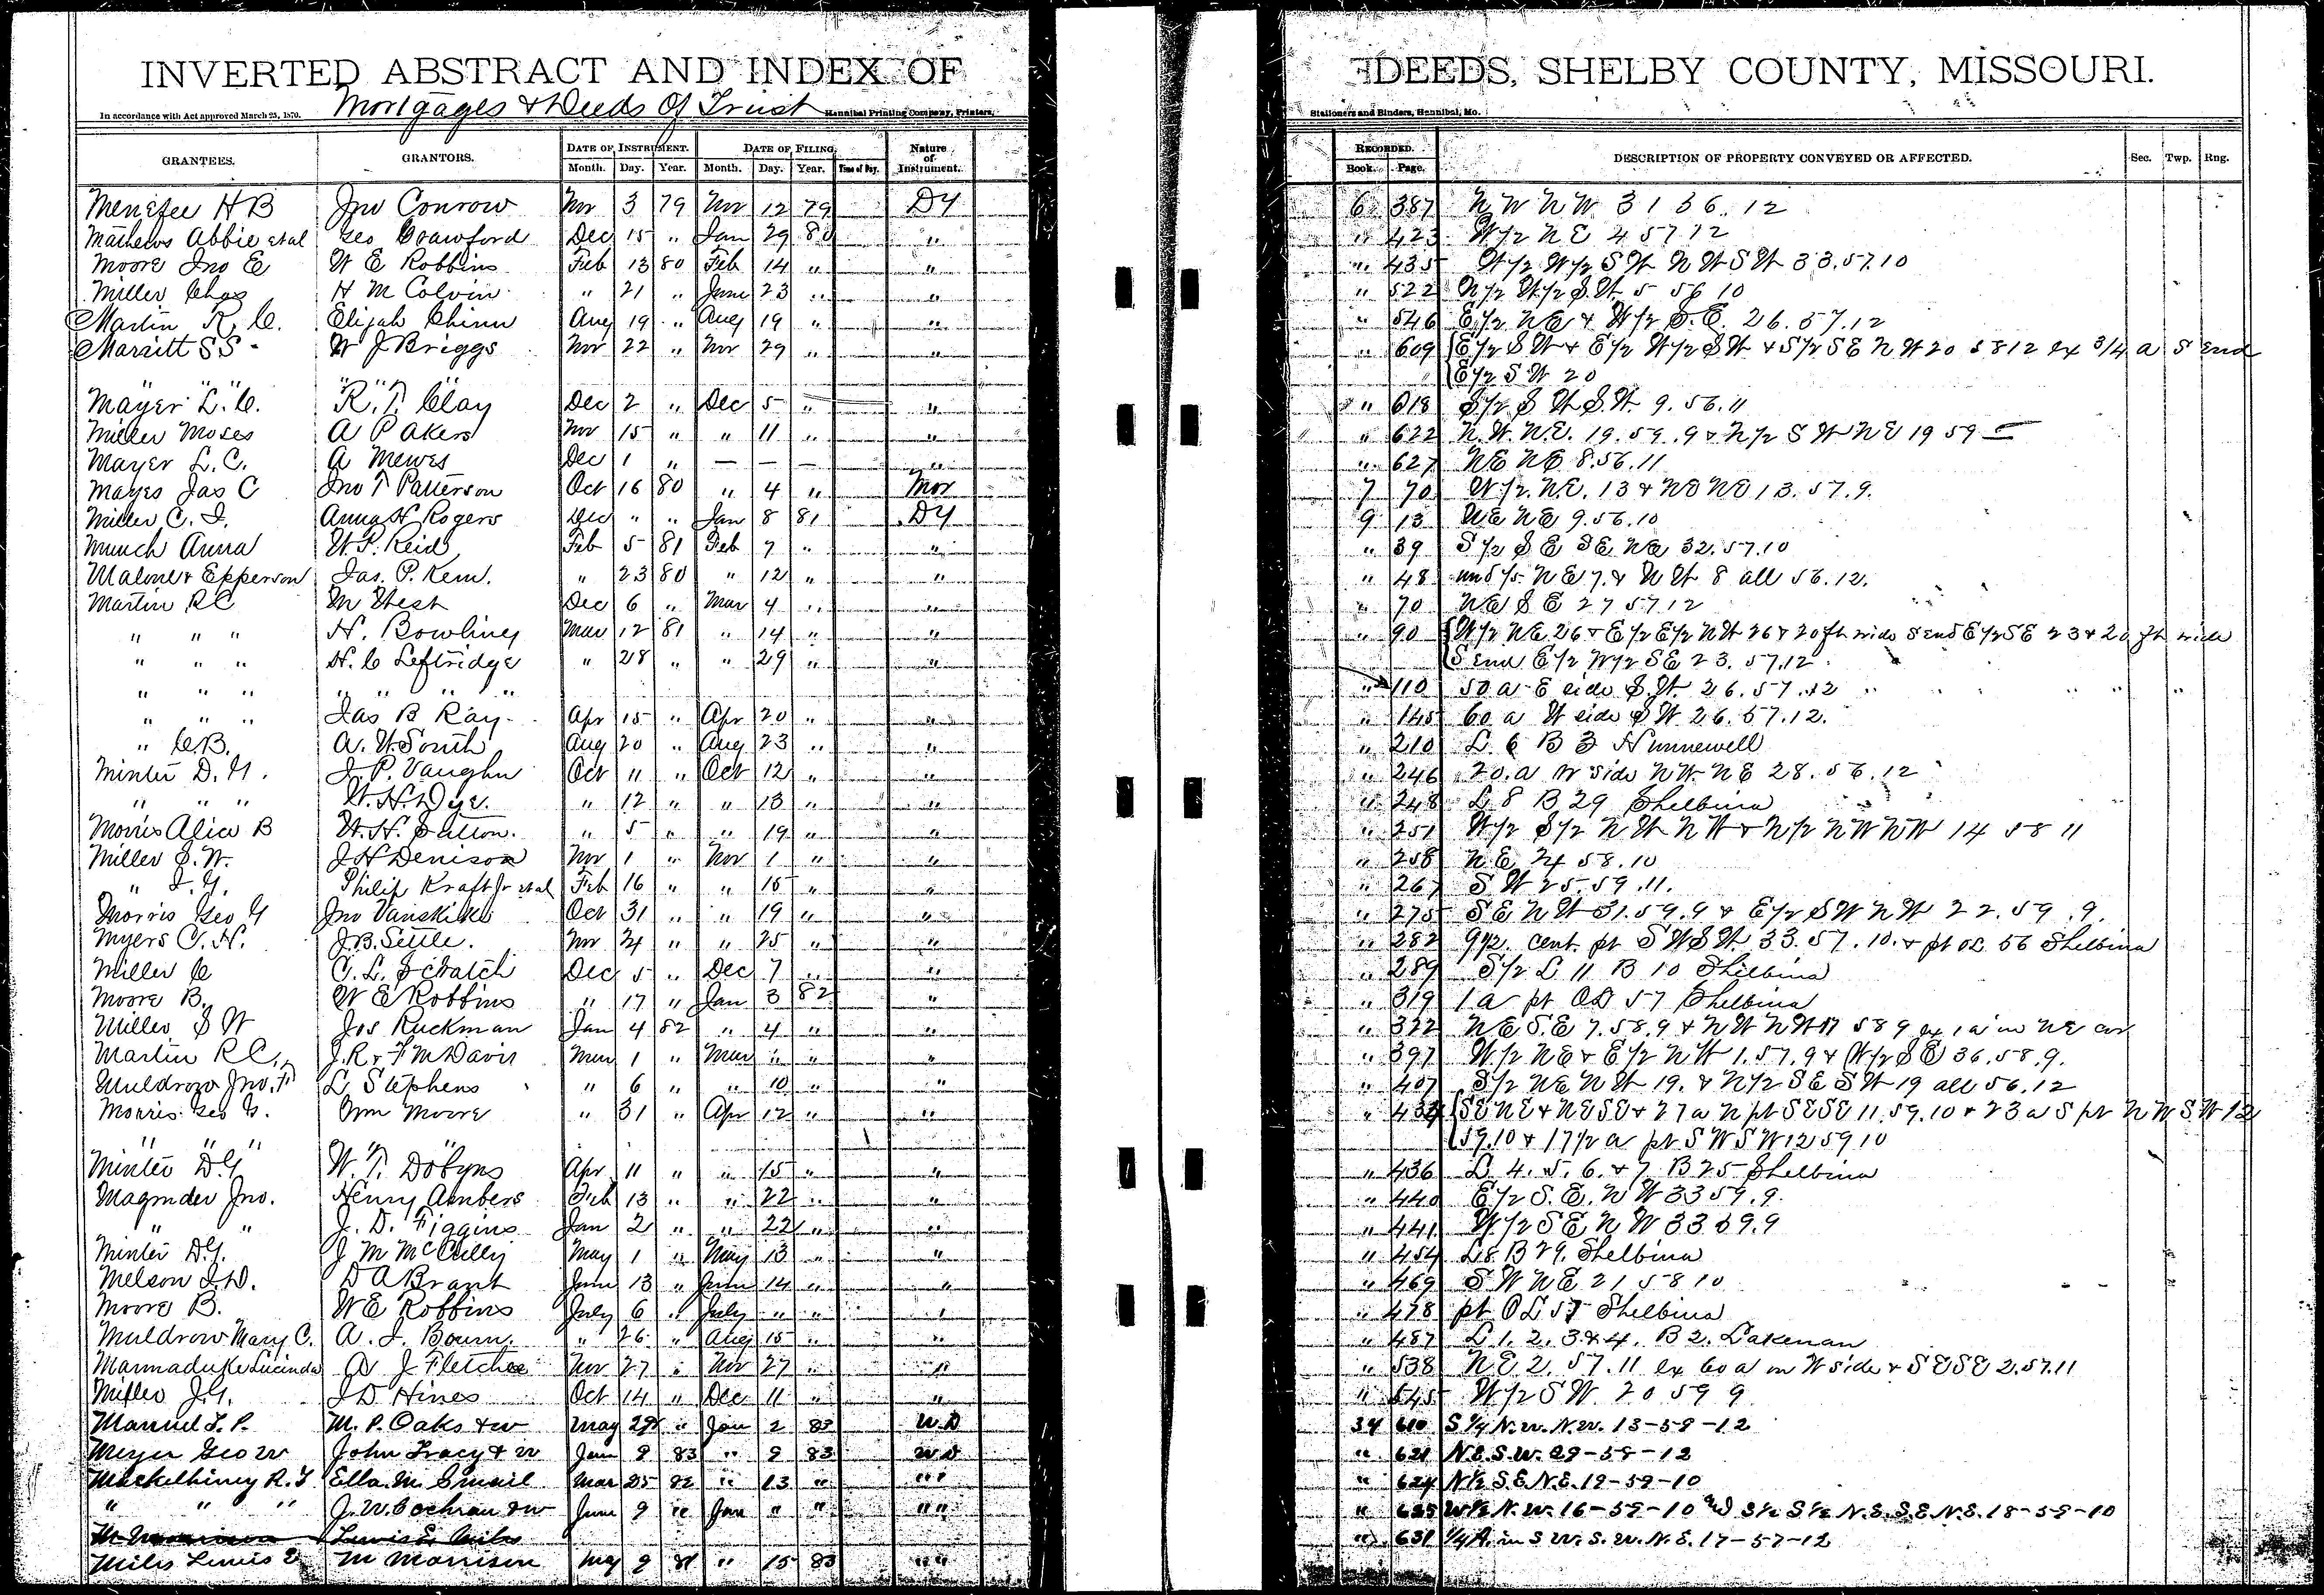 INVERTED ABSTRACT AND INDEX OF DEEDS, SHELBY COUNTY, MISSOURI.
Mortgages & Deeds Of Trust
In accordance with Act approved March 25, 1870. Hannibal Printing Company, Printers, Stationers and Binders, Hannibal, Mo.
GRANTEES. GRANTORS. DATE OF INSTRUMENT. DATE OF FILING Nature of Instrument. RECORDED. DESCRIPTION OF PROPERTY CONVEYED OR AFFECTED. Sec. Twp. Rng.
Month. Day. Year. Month. Day. Year. Time of Day. Book. Page.
Menefee H B Jno Conrow Nov 3 79 Nov 12 79 DY 6 387 N W N W 31 56. 12
Mathews Abbie et al Geo Crawford Dec 15 " Jan 29 80 " " 423 W 1/2 N E 4 57 12
Moore Jno E W E Robbins Feb 13 80 Feb 14 " " " 435 W 1/2 W 1/2 S W N W S W 33. 57. 10
Miller Chas H M Colvin " 21 " June 23 " " " 522 N 1/2 W 1/2 S. W. 5 56 10
Martin R. C. Elijah Chinn Aug 19 " Aug 19 " " " 546 E 1/2 N E & W 1/2 S. E. 26. 57. 12
Marsitt S S W J Briggs Nov 22 " Nov 29 " " " 609 E 1/2 S W & E 1/2 W 1/2 S W & S 1/2 S E N W 20 58 12 ex 3/4 a S end
" " " " " " E 1/2 S W 20
Mayer L. C. R. T. Clay Dec 2 " Dec 5 " " " 618 S 1/2 S W S. W. 9. 56. 11
Miller Moses A P Akers Nov 15 " " 11 " " " 622 N. W. N. E. 19. 59. 9 & N 1/2 S W N E 19 59
Mayer L. C. A Mewes Dec 1 " — — — " " 627 N E N E 8. 56. 11
Mayes Jas C Jno T Patterson Oct 16 80 " 4 " Mor 7 70 W 1/2. N. E. 13 & N E N E 13. 57. 9.
Miller C. I. Anna H Rogers Dec " " Jan 8 81 DY 9 13 N E N E 9. 56. 10
Munch Anna W. P. Reid Feb 5 81 Feb 7 " " " 39 S 1/2 S E S E N E 32. 57. 10
Malone & Epperson Jas. P. Kem. " 23 80 " 12 " " " 48 und 1/5 N E 7. & N W 8 all 56. 12.
Martin R C M West Dec 6 " Mar 4 " " " 70 N E S E 27 57 12
" " " H. Bowling Mar 12 81 " 14 " " " 90 W 1/2 N E 26 & E 1/2 E 1/2 N W 26 & 20 ft wide S end E 1/2 S E 23 & 20 ft wide
" " " H. C Leftridge " 28 " " 29 " " S end E 1/2 W 1/2 S E 23. 57. 12
" " " " " " " " 110 50 a E side S. W. 26. 57. 12
" " " Jas B Ray Apr 15 " Apr 20 " " " 145 60 a W side S W 26. 57. 12.
" C. B. A. W. South Aug 20 " Aug 23 " " " 210 L. 6 B 3 Hunnewell
Minter D. Y. J. P. Vaughn Oct 11 " Oct 12 " " " 246 20. a N side N W. N E 28. 56. 12
" " " W. H. Dye. " 12 " " 13 " " " 248 L 8 B 29 Shelbina
Morris Alice B W. H. Sutton. " 5 " " 19 " " " 251 W 1/2 S 1/2 N W N W & N 1/2 N W N W 14 58 11
Miller S. W. J H Denison Nov 1 " Nov 1 " " " 258 N. E. 24 58. 10
" J. Y. Philip Kraft Jr et al Feb 16 " " 15 " " " 267 S W 25. 59. 11.
Morris Geo Y Jno Vanskike Oct 31 " " 19 " " " 275 S E N W 31. 59. 9 & E 1/2 S W N W 22. 59. 9.
Myers C. H. J. B. Settle. Nov 24 " " 25 " " " 282 9 1/2 cent. pt S W S W. 33. 57. 10. & pt O L 56 Shelbina
Miller C C. L. Scratch Dec 5 " Dec 7 " " " 289 S 1/2 L 11 B 10 Shelbina
Moore B. W E Robbins " 17 " Jan 3 82 " " 319 1 a pt O L 57 Shelbina
Miller S W Jos Ruckman Jan 4 82 " 4 " " " 322 N E S. E 7. 58. 9 & N W N W 17 58 9 ex 1 a in N E cor
Martin R C. J. R & F M Davis Mar 1 " Mar " " " " 397 W 1/2 N E & E 1/2 N W 1. 57. 9 & W 1/2 S E 36. 58. 9.
Muldrow Jno. F L Stephens " 6 " " 10 " " " 407 S 1/2 N E N W 19. & N 1/2 S E S W 19 all 56. 12
Morris Geo Y. Wm Moore " 31 " Apr 12 " " " 434 S E N E & N E S E & 27 a N pt S E S E 11. 59. 10 & 23 a S pt N W S W 12
" " " " 59. 10 & 17 1/2 a pt S W S W 12 59 10
Minter D. Y. W. T. Dobyns Apr 11 " " 15 " " " 436 L. 4. 5. 6. & 7 B 25 Shelbina
Magruder Jno. Henry Ambers Feb 13 " " 22 " " " 440 E 1/2 S. E. N W 33 59. 9.
" " J. D. Figgins Jan 2 " " 22 " " " 441 W 1/2 S E N W 33 59. 9
Minter D. Y. J M McCully May 1 " May 13 " " " 454 L 8 B 29. Shelbina
Melson J. D. D A Brant June 13 " June 14 " " " 469 S W N E 21 58 10
Moore B. W E Robbins July 6 " July " " " " 478 pt O L 57 Shelbina
Muldrow Mary C. A. J. Bourn. " 26 " Aug 15 " " " 487 L 1. 2. 3 & 4. B 2. Lakenan
Marmaduke Lucinda A J Fletcher Nov 27 " Nov 27 " " " 538 N E 2. 57. 11 ex 60 a on W side & S E S E 2. 57. 11
Miller J. Y. J D Hines Oct 14 " Dec 11 " " " 545 W 1/2 S W. 20 59 9
Manuel L. P. M. P. Oaks & w May 29 " Jan 2 83 W. D 34 610 S 1/4 N. W. N. W. 13-58-12
Meyer Geo W John Tracy & W Jan 9 83 " 9 83 W D " 621 N. E. S. W. 29-58-12
Mackelhiney R. Y Ella M Smail Mar 25 82 " 13 " " " " 624 N 1/2 S. E. N. E. 19-59-10
" " " J. W. Cochran & w June 9 " Jan " " " " " 625 W 1/2 N. W. 16-59-10 and S 1/2 S 1/2 N. E. S. E. N. E. 18-59-10
M Morrison Lewis E. Miles " 631 1/4 A. in S W. S. W. N. E. 17-57-12
Miles Lewis E M Morrison May 9 81 " 15 83 " "